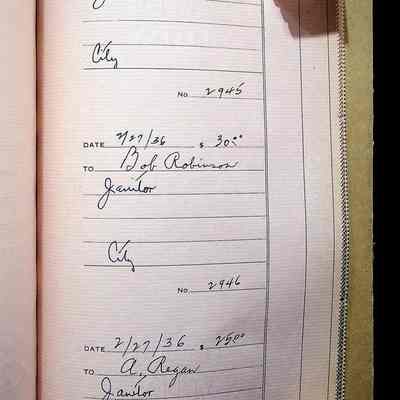 City
No 2945
DATE 2/27/36 $ 30.00
TO Bob Robinson
Janitor
City
No 2946
DATE 2/27/36 $ 25.00
TO A. Regan
Janitor